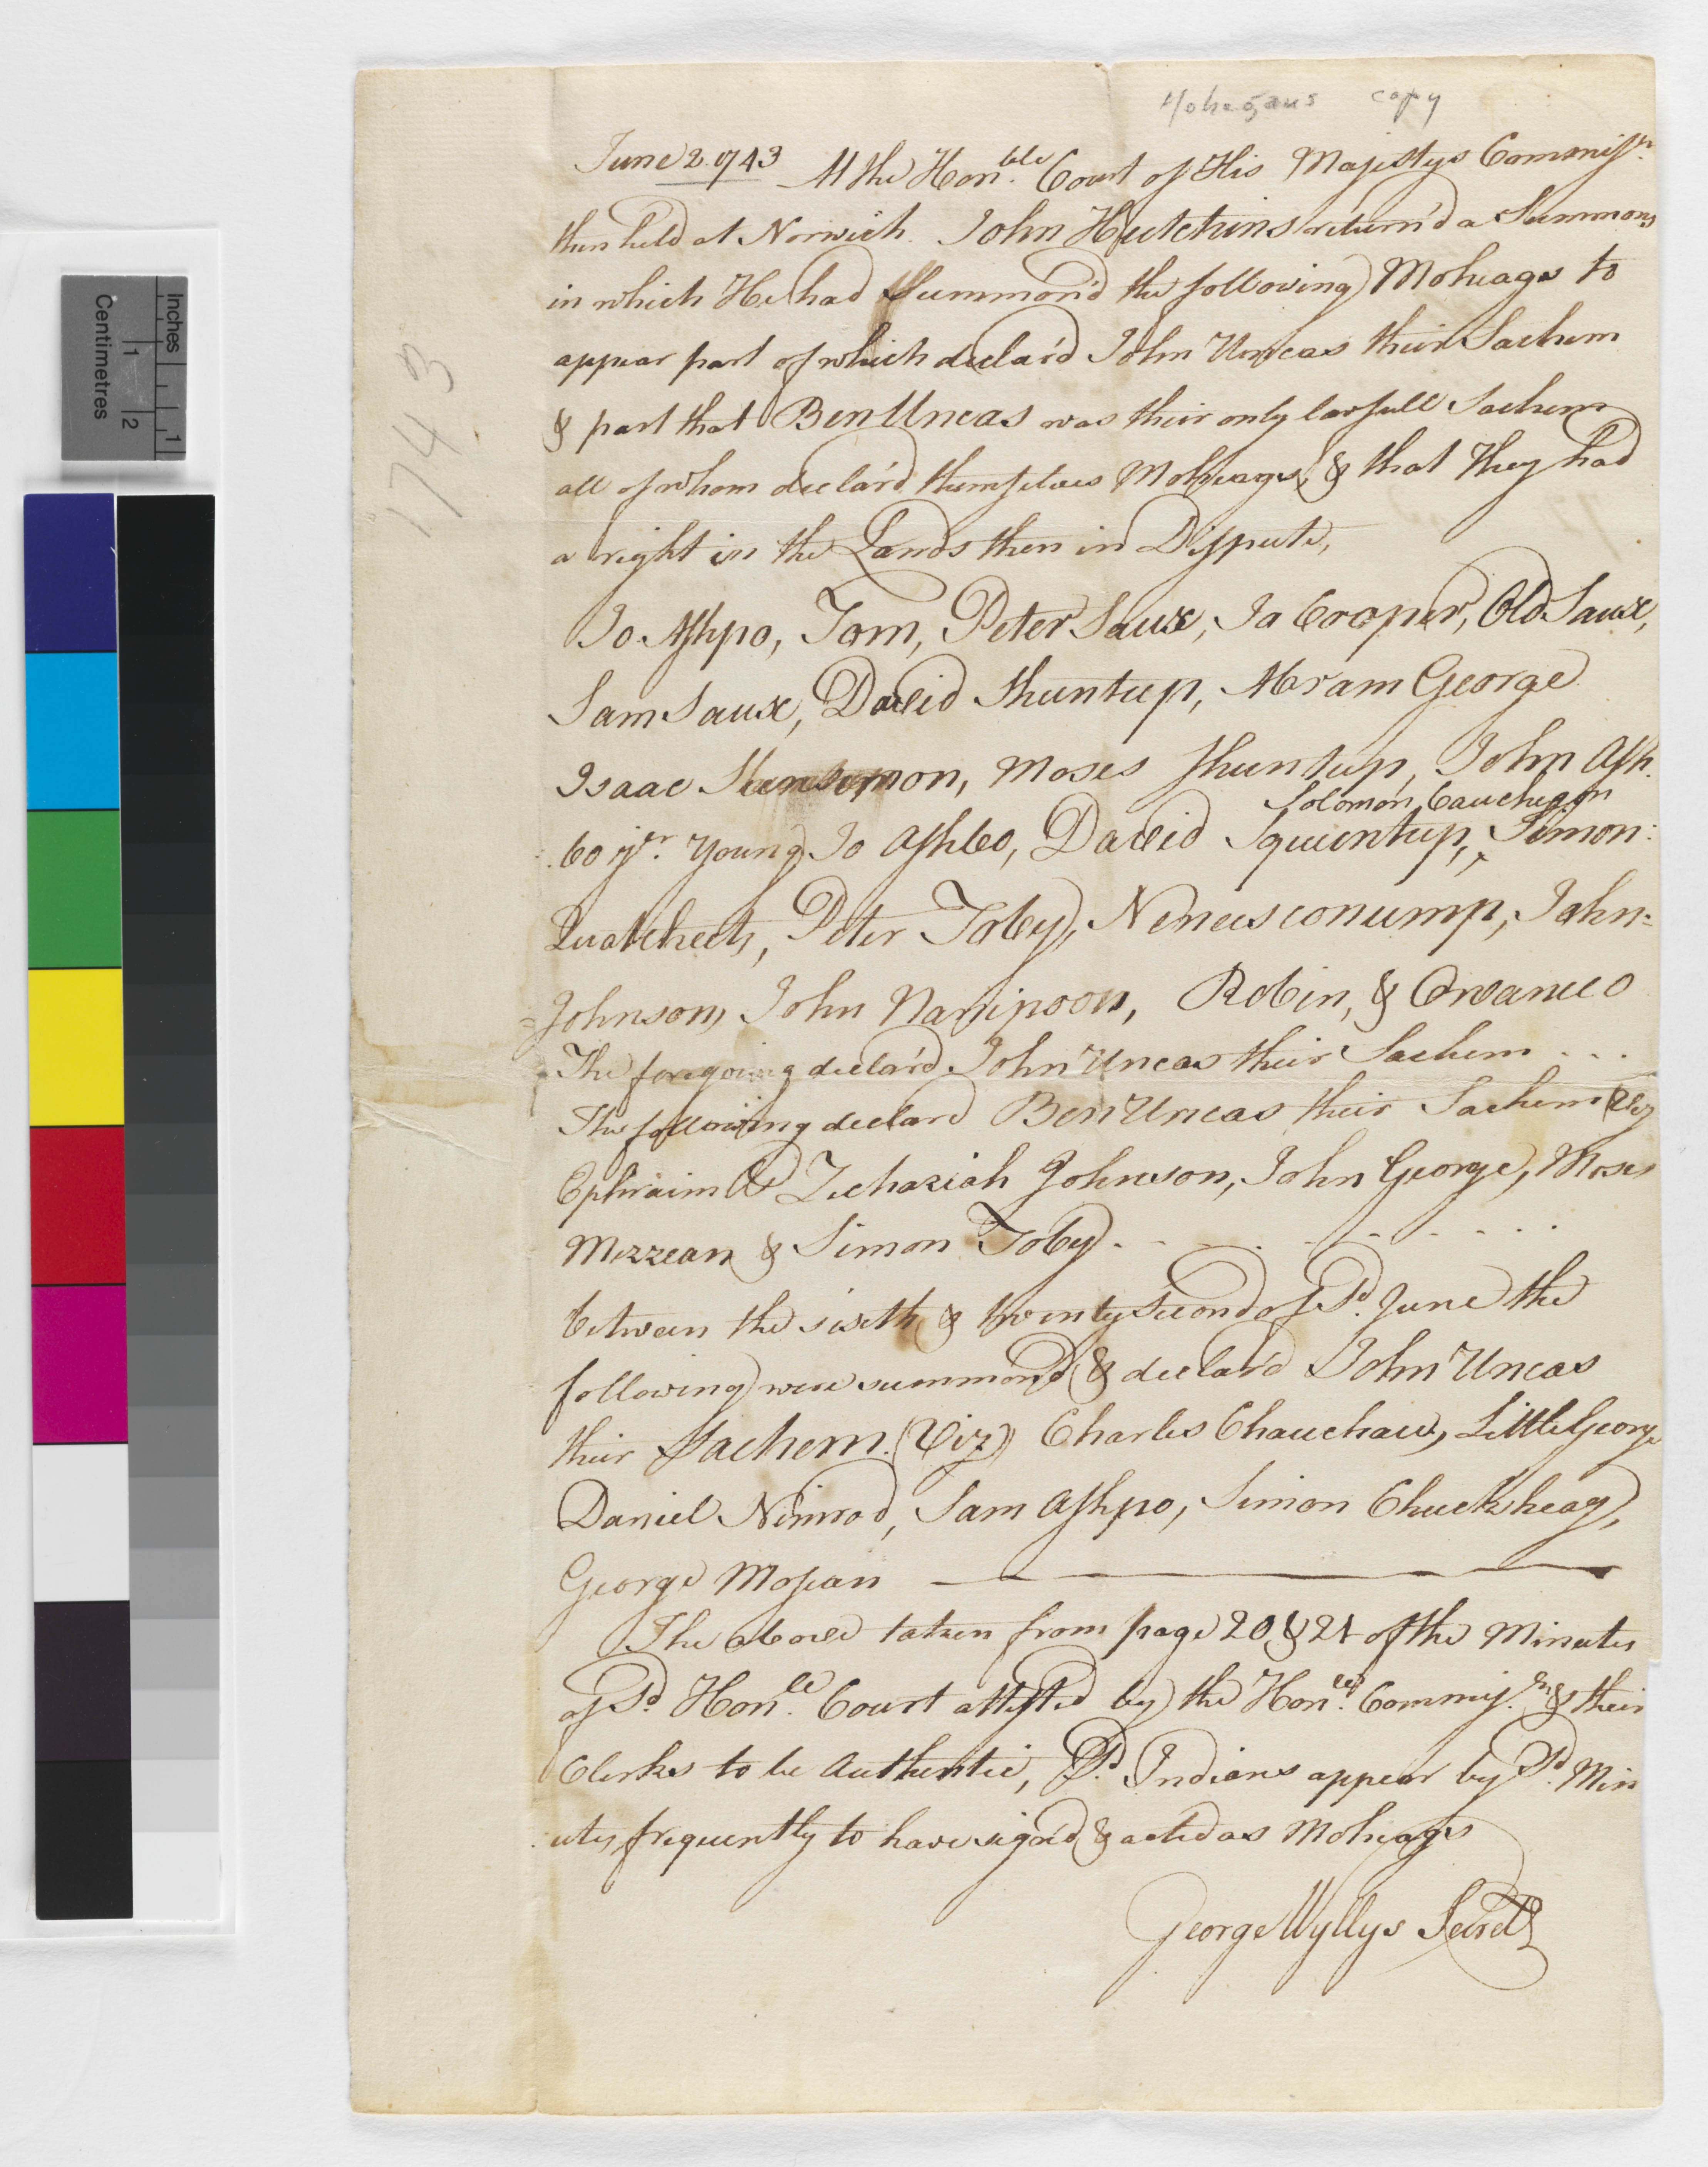 Mohegans copy
June 2 1743 At the Hon.ble Court of His Majestys Commiss.rs
then held at Norwich. John Hutchins return'd a Summons
in which He had Summon'd the following Moheags to
appear part of which declar'd John Uncas their Sachem
& part that Ben Uncas was their only lawfull Sachem
all of whom declar'd themselves Moheags, & that They had
a right in the Lands then in Dispute,
Jo Ashpo, Tom, Peter Saux, Jo Cooper, Old Saux,
Sam Saux, David Shuntup, Abram George
Isaac mon, Moses Shuntup, John Ash.
Solomon Cauchegon
bo jr. Young Jo Ashbo, David Squuntup, ‸ Simon:
Quatcheets, Peter Toby, Neneusconump, John-
Johnson, John Nannipoon, Robin, & Owaneco
The foregoing declar'd John Uncas their Sachem ...
The following declard Ben Uncas their Sachem (Viz
Ephraim & Zechariah Johnson, John George, Moses
Mezzean & Simon Toby - - - - - - - -
between the sixth & twenty second of Sd. June the
following were summond & declar'd John Uncas
their Sachem. (Viz) Charles Chauchau, Little George
Daniel Nimrod, Sam Ashpo, Simon Chucksheag,
George Mosean
The above taken from page 20 & 21 of the Minutes
of Sd. Hon.le Court attested by the Hon.le Commiss.rs & their
Clerks to be Authentic, Sd. Indians appear by Sd. Min
utes, frequently to have sign'd & acted as Moheags
George Wyllys Secret.y
1743
Inches
Centimetres
1
2
1